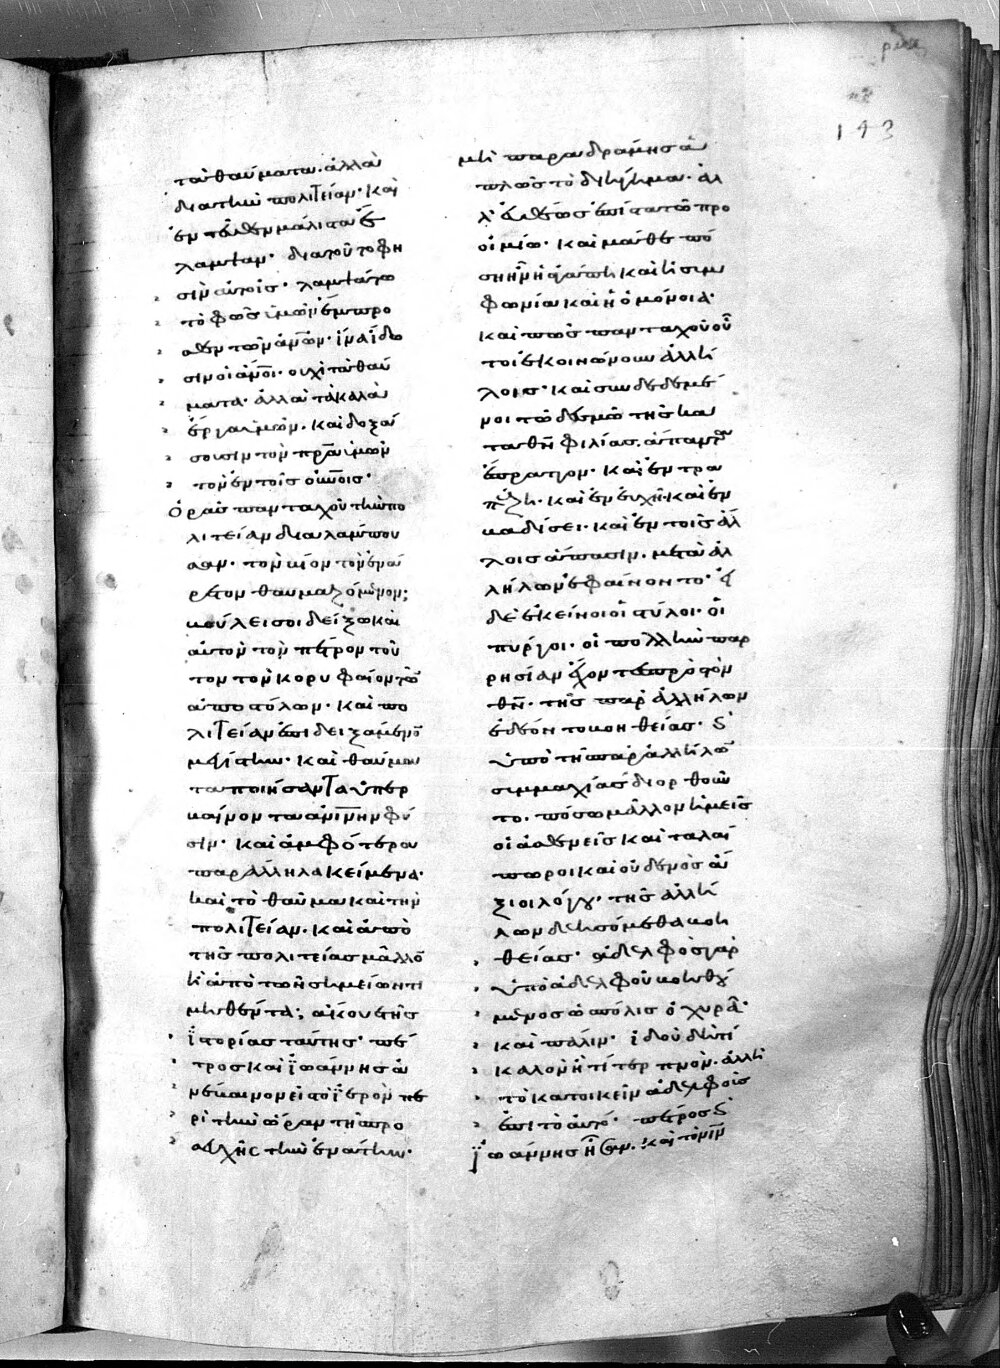 143
τὰ θαύματα. ἀλλὰ
διὰ τὴν πολιτείαν· καὶ
ἐντεῦθεν μάλιστα ἐξ
έλαμψαν· διὰ τοῦτο φη
σὶν αὐτοῖς· λαμψάτω
τὸ φῶς ὑμῶν ἔμπρο
σθεν τῶν ἀνῶν· ἵνα ἴδω
σιν οἱ ἀνοι· οὐχὶ τὰ θαύ
ματα· ἀλλὰ τὰ καλὰ
ἔργα ὑμῶν. καὶ δοξά
σουσιν τὸν πρα ὑμῶν
τὸν ἐν τοῖς οὐνοις·
ὁρᾶς πανταχοῦ τὴν πο
λιτείαν διαλάμπου
σαν· τὸν βίον τὸν ἐνά
ρετον θαυμαζόμενον;
βούλει σοι δείξω καὶ
αὐτὸν τὸν πέτρον τοῦ
τον τὸν κορυφαῖον τῶν
ἀποστόλων· καὶ πο
λιτείαν ἐπιδειξάμενον
μεγίστην· καὶ θαύμα
τα ποιήσαντα ὑπερ
βαίνοντα ἀνίνην φύ
σιν· καὶ ἀμφότερα
παράλληλα κείμενα·
καὶ τὸ θαῦμα καὶ τὴν
πολιτείαν. καὶ ἀπὸ
τῆς πολιτείας μᾶλλον
ἢ ἀπὸ τῶν σημείων τι
μηθέντα; ἄκουε τῆς
ἱστορίας ταύτης· πέ
τρος καὶ ἰωάννης ἀ
νέβαινον εἰς τὸ ἱερὸν πε
ρὶ τὴν ὥραν τῆς προ
σευχῆς τὴν ἐνάτην·
μὴ παραδράμῃς ἁ
πλῶς τὸ διήγημα· ἀλ
λ' εὐθέως ἐπίστα τῶ προ
οιμίω· καὶ μάνθανε πό
ση ἦν ἡ ἀγάπη καὶ ἡ συμ
φωνία καὶ ἡ ὁμόνοια·
καὶ πῶς πανταχοῦ οὗ
τοι ἐκοινώνουν ἀλλή
λοις· καὶ συνδεδεμέ
νοι τῶ δεσμῶ τῆς κα
τὰ θν φιλίας. ἅπαντα
ἔπραττον· καὶ ἐν τρα
πέζη· καὶ ἐν εὐχῆ· καὶ ἐν
βαδίσει· καὶ ἐν τοῖς ἄλ
λοις ἅπασιν. μετὰ ἀλ
λήλων ἐφαίνοντο· εἰ
δὲ ἐκεῖνοι οἱ στύλοι· οἱ
πύργοι· οἱ πολλὴν παρ
ρησίαν ἔχοντες πρὸς τὸν
θν· τῆς παρ' ἀλλήλων
ἐδέοντο βοηθείας· καὶ
ὑπὸ τῆς παρ' ἀλλήλων
συμμαχίας διορθοῦν
το. πόσω μᾶλλον ἡμεῖς
οἱ ἀσθενεῖς καὶ ταλαί
πωροι καὶ οὐδενὸς ἄ
ξιοι λόγου, τῆς ἀλλή
λων δεησόμεθα βοη
θείας· ἀδελφὸς γὰρ
ὑπὸ ἀδελφοῦ βοηθού
μενος ὡς πόλις ὀχυρά·
καὶ πάλιν· ἰδοὺ δὴ τί
καλὸν ἢ τί τερπνὸν. ἀλλ' ἢ
τὸ κατοικεῖν ἀδελφοὺς
ἐπὶ τὸ αὐτό· πέτρος καὶ
ἰωάννης ἦσαν. καὶ τὸν ιν